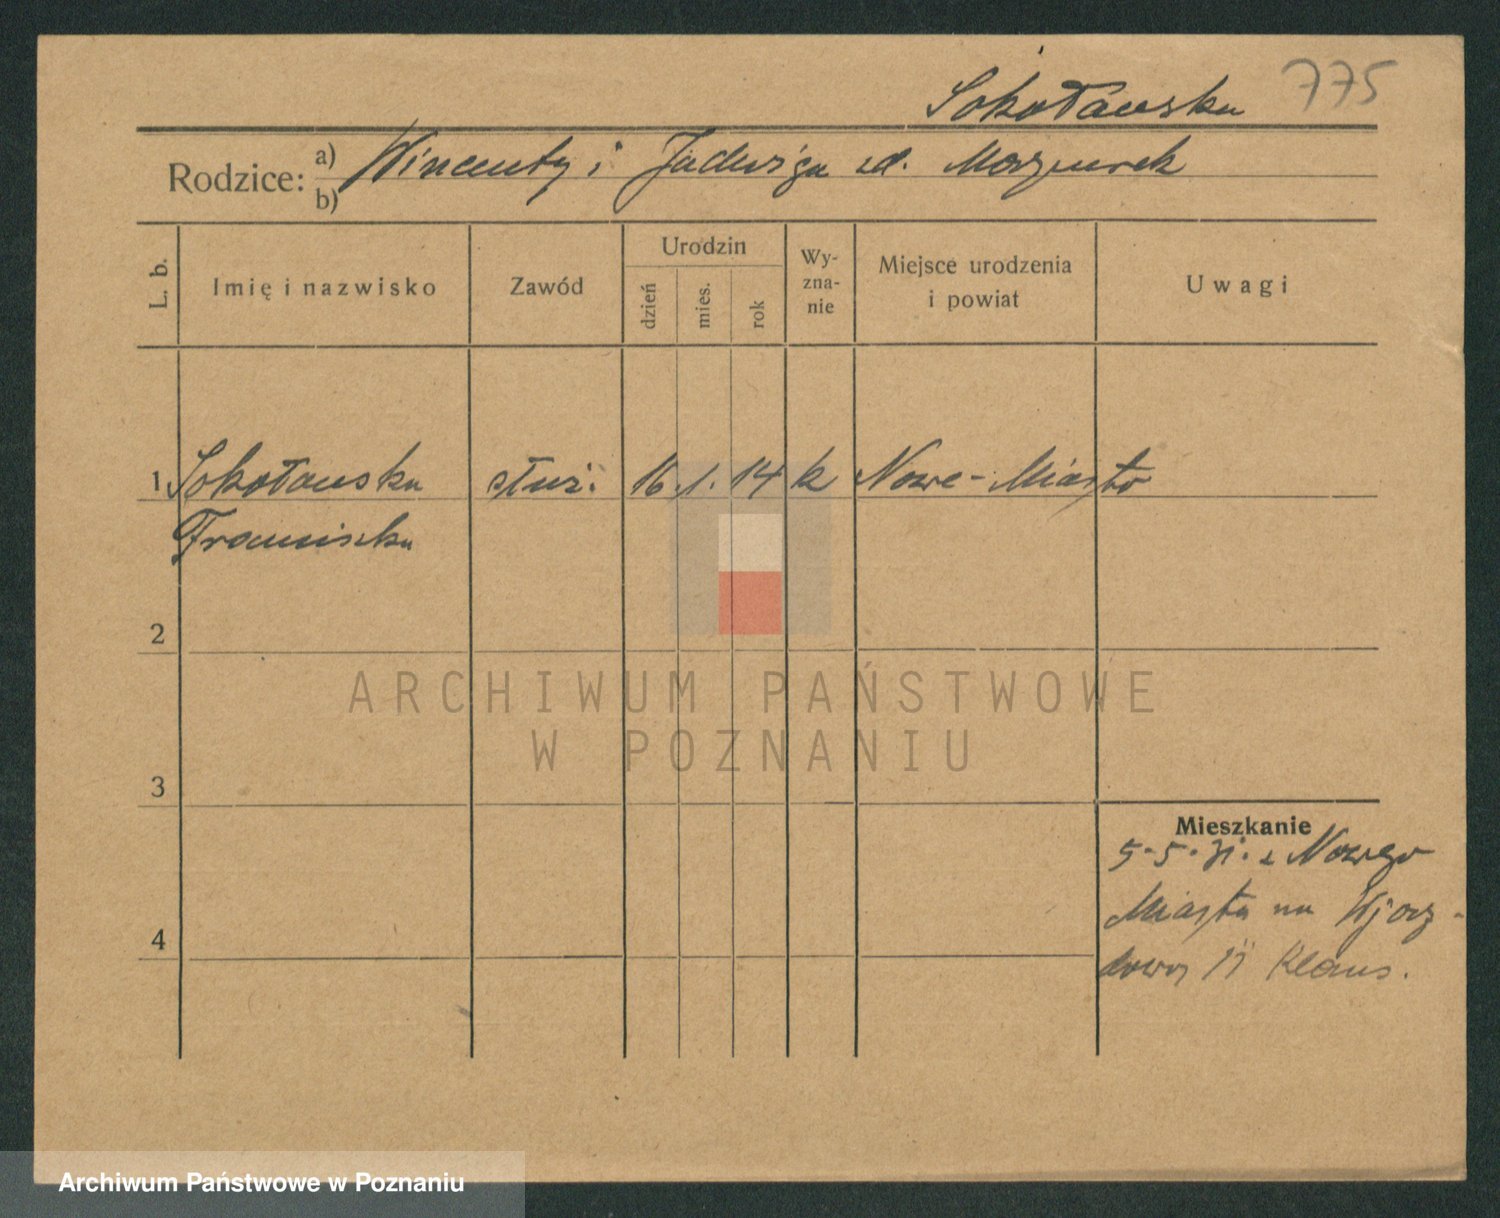 Sokołowska 775
Rodzice: a) Wincenty i Jadwiga zd.
b)
L. b.
Imię i nazwisko
Zawód
Urodzin
dzień
mies.
rok
Wy-
zna-
nie
Miejsce urodzenia
i powiat
Uwagi
1 Sokołowska służ. 16 1. 14 k Nowe-Miasto
Franciszka
2
3
4
Mieszkanie
5.5.31. z Nowego
Miasta na
11 Klaus.
ARCHIWUM PAŃSTWOWE
W POZNANIU
Archiwum Państwowe w Poznaniu